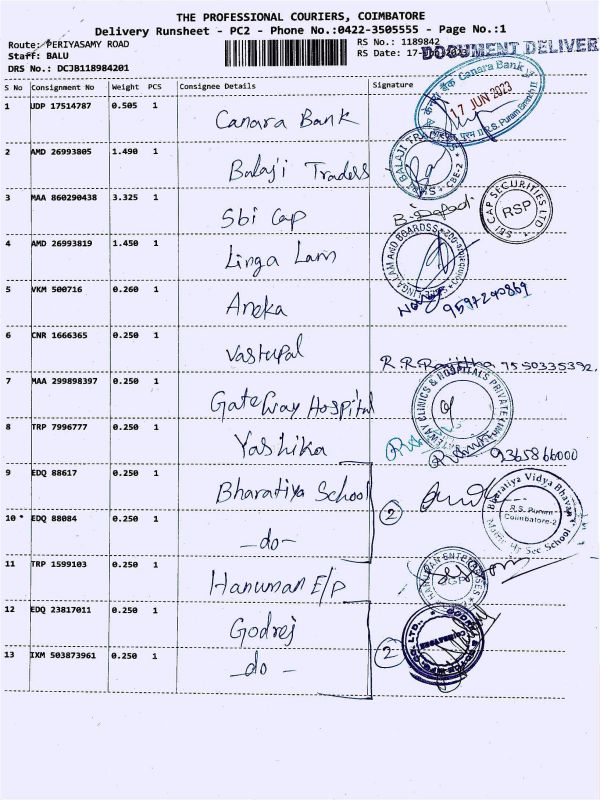 THE PROFESSIONAL COURIERS, COIMBATORE
Delivery Runsheet - PC2 - Phone No.:0422-3505555 - Page No.:1
Route: PERIYASAMY ROAD
RS No.: 1189842
DOCUMENT DELIVER
Staff: BALU
RS Date: 17-
DRS No.: DCJB118984201
S No Consignment No Weight PCS Consignee Details Signature
केनरा बैंक Canara Bank
17 JUN 2023
R.S. Puram Branch II
1 UDP 17514787 0.505 1 Canara Bank
2 AMD 26993805 1.490 1 Balaji Traders
BALAJI TRADERS
CBE-2
3 MAA 860290438 3.325 1 Sbi Cap
SBI CAP SECURITIES LTD
RSP
4 AMD 26993819 1.450 1 Linga Lam
LINGALAM AND BOARDSS
5 VKM 500716 0.260 1 Aneka
6 CNR 1666365 0.250 1 Vastupal
R.R. 7550335392
7 MAA 299898397 0.250 1 GateWay Hospital
GATEWAY CLINICS & HOSPITALS PRIVATE LIMITED
8 TRP 7996777 0.250 1 Yashika
9365866000
9 EDQ 88617 0.250 1 Bharatiya School
2
Bharatiya Vidya Bhavan
R.S. Puram
Coimbatore-2
Matric Hr Sec School
10 * EDQ 88084 0.250 1 -do-
11 TRP 1599103 0.250 1 Hanuman E/P
HANUMAN ENTERPRISES
12 EDQ 23817011 0.250 1 Godrej
2
13 IXM 503873961 0.250 1 -do-